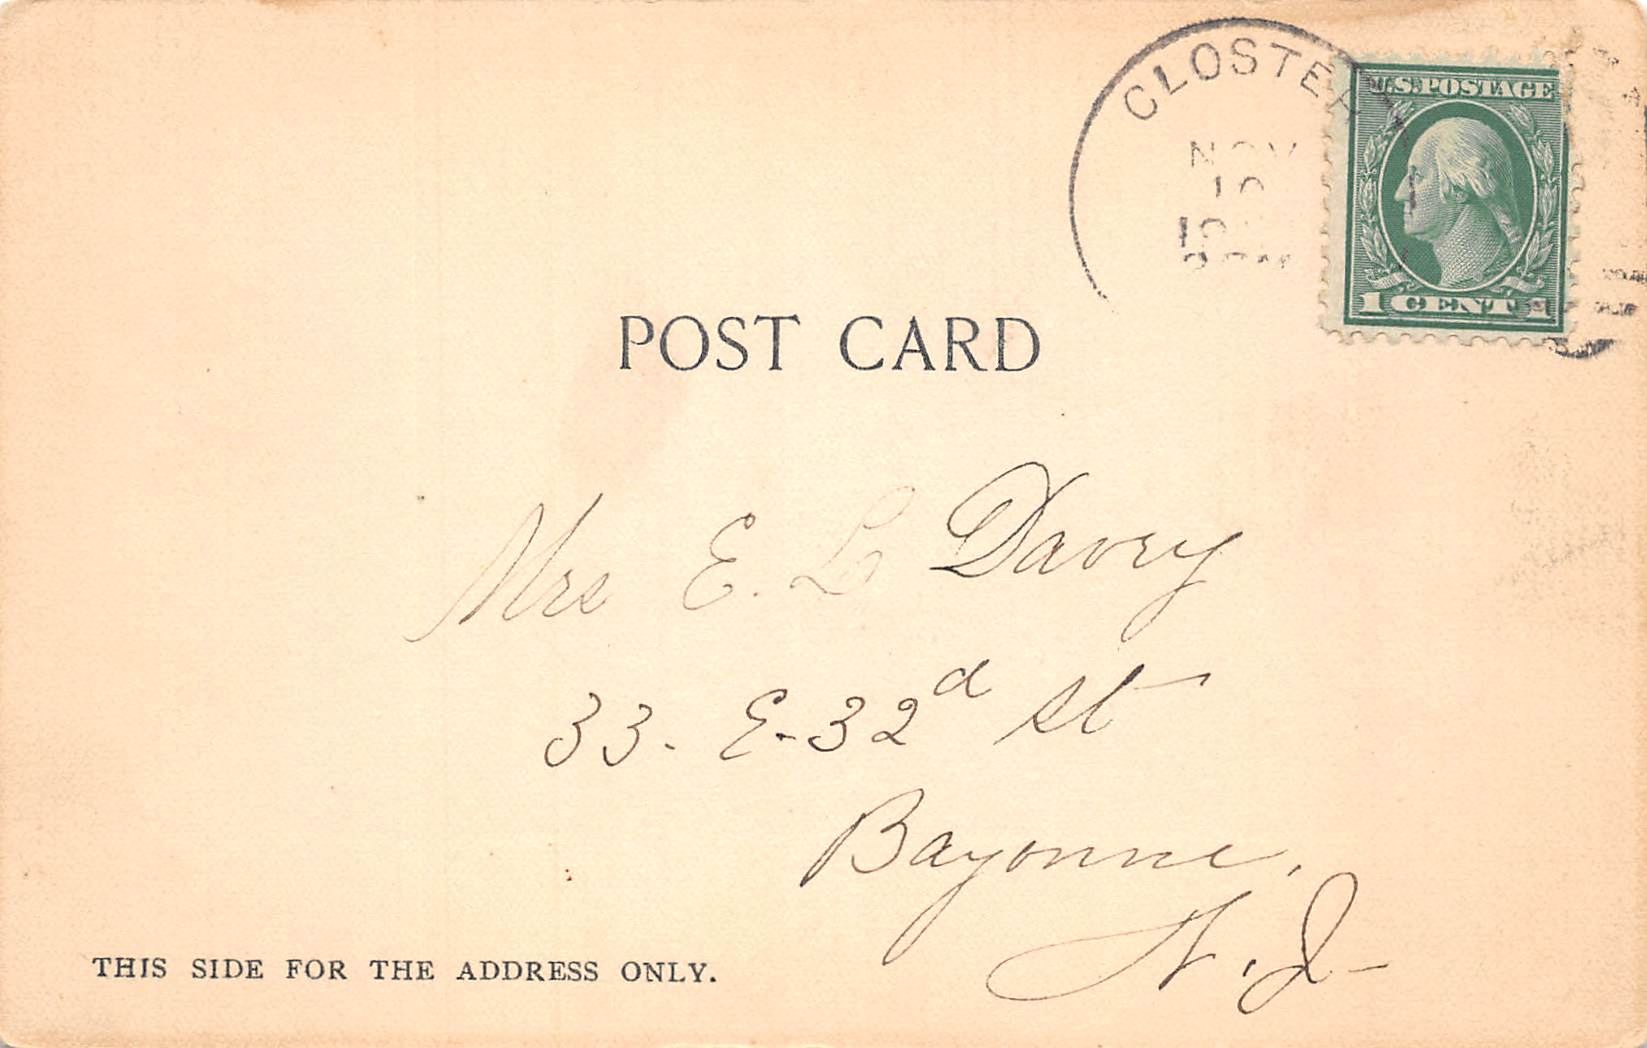 CLOSTER
NOV
10
U.S. POSTAGE
1 CENT 1
POST CARD
Mrs E. L Davey
33. E-32d St
Bayonne,
N.J-
THIS SIDE FOR THE ADDRESS ONLY.